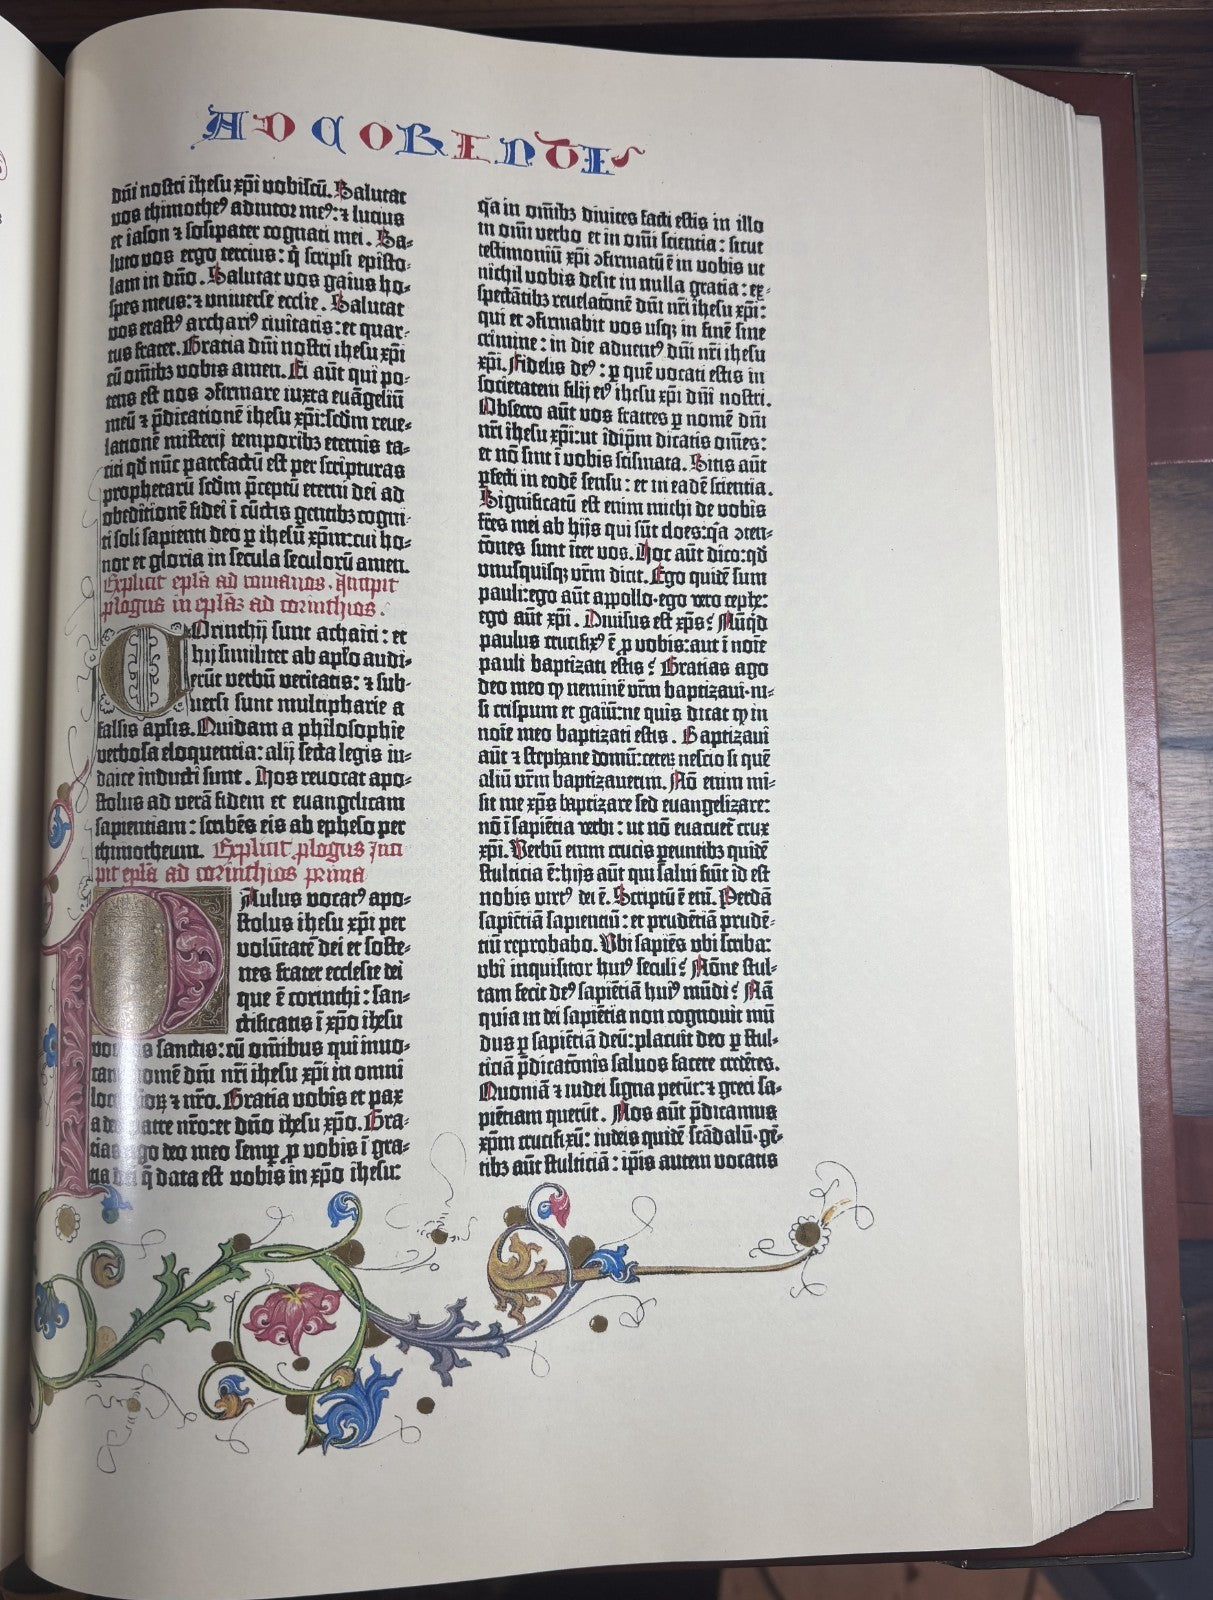 AD CORINTHIOS
dñi nostri ihesu xp̄i vobiscū. Salutat
vos thimotheꝰ adiutor meꝰ: ⁊ lucius
et iason ⁊ sosipater cognati mei. Sa⸗
luto vos ergo tercius: q̄ scripsi episto⸗
lam in dño. Salutat vos gaius ho⸗
spes meus: ⁊ universe ecclie. Salutat
vos erastꝰ archariꝰ civitatis: et quar⸗
tus frater. Gratia dñi nostri ihesu xp̄i
cū om̄ibꝫ vobis amen. Ei aūt qui po⸗
tens est vos ɔfirmare iuxta euāgeliū
meū ⁊ p̄dicationē ihesu xp̄i: scd̄m reve⸗
lationē misterij temporibꝫ eternis ta⸗
citi qd̄ nūc patefactū est per scripturas
prophetarū scd̄m p̄ceptū eterni dei ad
obeditionē fidei ī cūctis gentibꝫ cogni⸗
ti soli sapienti deo ꝑ ihesū xp̄m: cui ho⸗
nor et gloria in secula seculorū amen.
Explicit ep̄la ad romanos. Incipit
ꝓlogus in ep̄laꝫ ad corinthios.
COrinthij sunt achaici: et
hij similiter ab ap̄lo audi⸗
erūt verbū veritatis: ⁊ sub⸗
versi sunt multipharie a
falsis ap̄lis. Quidam a philosophie
verbosa eloquentia: alij secta legis iu⸗
daice inducti sunt. Hos revocat apo⸗
stolus ad verā fidem et evangelicam
sapientiam: scribēs eis ab epheso per
thimotheum. Explicit ꝓlogus Inci
pit ep̄la ad corinthios prima
PAulus vocatꝰ apo⸗
stolus ihesu xp̄i per
volūtatē dei et soste⸗
nes frater ecclesie dei
que ē corinthi: san⸗
ctificatis ī xp̄o ihesu
sanctis: cū om̄ibus qui invo⸗
cant nomē dñi nr̄i ihesu xp̄i in omni
loco ip̄oꝝ ⁊ nr̄o. Gratia vobis et pax
a deo patre nr̄o: et dño ihesu xp̄o. Gra⸗
tias ago deo meo semꝑ ꝓ vobis ī gra⸗
tia dei q̄ data est vobis in xp̄o ihesu:
q̄a in om̄ibꝫ divites facti estis in illo
in om̄i verbo et in om̄i scientia: sicut
testimoniū xp̄i ɔfirmatū ē in vobis ut
nichil vobis desit in nulla gratia: ex⸗
spectātibꝫ revelatōnē dñi nr̄i ihesu xp̄i:
qui et ɔfirmabit vos usqꝫ in finē sine
crimine: in die adventꝰ dñi nr̄i ihesu
xp̄i. Fidelis deꝰ: ꝑ quē vocati estis in
societatem filij eiꝰ ihesu xp̄i dñi nostri.
Obsecro aūt vos fratres ꝑ nomē dñi
nr̄i ihesu xp̄i: ut idip̄m dicatis om̄es:
et nō sint ī vobis scismata. Sitis aūt
ꝑfecti in eodē sensu: et in eadē scientia.
Significatū est enim michi de vobis
fr̄es mei ab hijs qui sūt cloes: q̄a ɔten⸗
tōnes sunt iter vos. Hoc aūt dico: qd̄
unusquisqꝫ vr̄m dicit. Ego quidē sum
pauli: ego aūt appollo· ego vero cephe:
ego aūt xp̄i. Divisus est xp̄s? Nūqd̄
paulus crucifixꝰ ē ꝓ vobis: aut ī noīe
pauli baptizati estis? Gratias ago
deo meo ꝙ neminē vr̄m baptizavi· ni⸗
si crispum et gaiū: ne quis dicat ꝙ in
noīe meo baptizati estis. Baptizavi
aūt ⁊ stephane domū: ceteꝝ nescio si quē
aliū vr̄m baptizaverim. Nō enim mi⸗
sit me xp̄s baptizare sed evangelizare:
nō ī sapiētia verbi: ut nō evacuet̄ crux
xp̄i. Verbū enim crucis ꝑeuntibꝫ quidē
stulticia ē: hijs aūt qui salvi fiūt id est
nobis virtꝰ dei ē. Scriptū ē eni. Perdā
sapiētiā sapienciū: et prudētiā prudē⸗
tiū reprobabo. Ubi sapiēs ubi scriba:
ubi inquisitor huiꝰ seculi? Nōne stul⸗
tam fecit deꝰ sapiētiā huiꝰ mūdi? Nā
quia in dei sapiētia non cognovit mū
dus ꝑ sapiētiā deū: placuit deo ꝑ stul⸗
ticiā p̄dicatōnis salvos facere credētes.
Quoniā ⁊ iudei signa petūt: ⁊ greci sa⸗
piētiam querūt. Nos aūt p̄dicamus
xp̄m crucifixū: iudeis quidē scādalū· gē⸗
tibꝫ aūt stulticiā: ip̄is autem vocatis